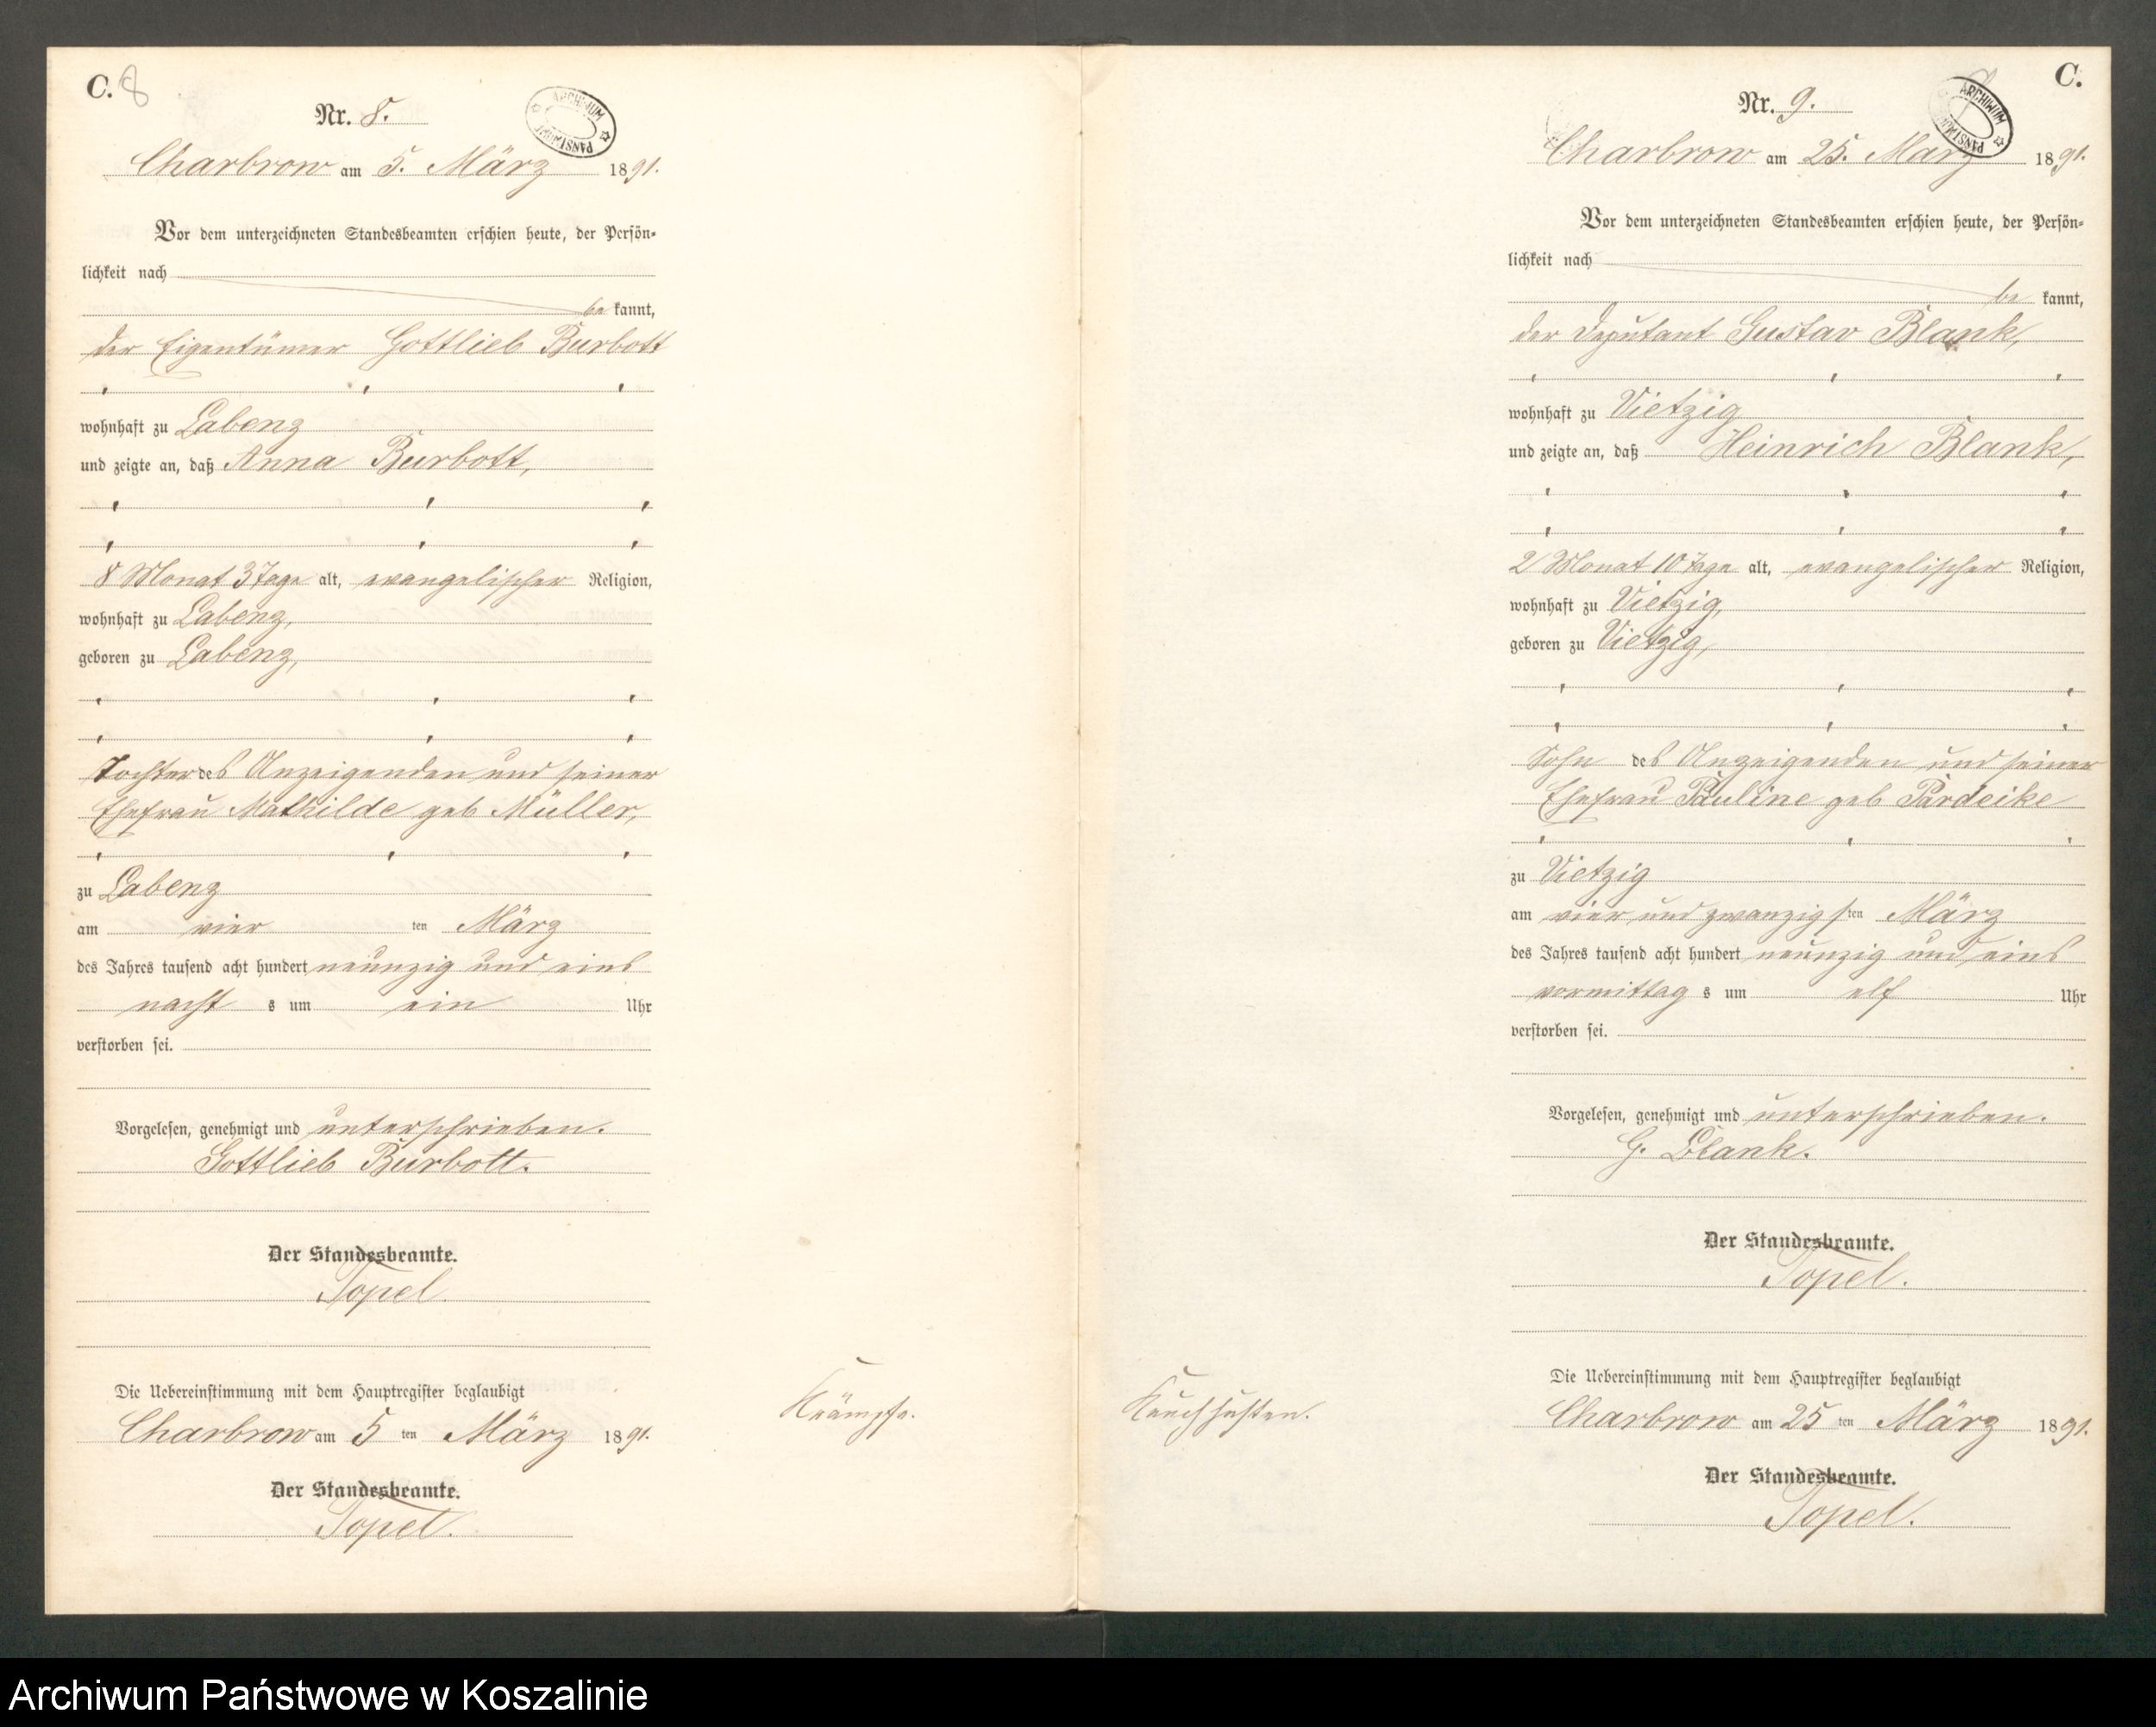 C. 8
Nr. 8.
ARCHIWUM PAŃSTWOWE
Charbrow am 5. März 1891.
Vor dem unterzeichneten Standesbeamten erschien heute, der Persön-
lichkeit nach
be kannt,
der Eigentümer Gottlieb Burbott
wohnhaft zu Labenz
und zeigte an, daß Anna Burbott,
8 Monat 3 Tage alt, evangelischer Religion,
wohnhaft zu Labenz,
geboren zu Labenz,
Tochter des Anzeigenden und seiner
Ehefrau Mathilde geb Müller,
zu Labenz
am vier ten März
des Jahres tausend acht hundert neunzig und eins
nacht s um ein Uhr
verstorben sei.
Vorgelesen, genehmigt und unterschrieben.
Gottlieb Burbott.
Der Standesbeamte.
Topel
Die Uebereinstimmung mit dem Hauptregister beglaubigt
Charbrow am 5 ten März 1891.
Der Standesbeamte.
Topel.
Krämpfe.
C.
Nr. 9.
ARCHIWUM PAŃSTWOWE
Charbrow am 25. März 1891.
Vor dem unterzeichneten Standesbeamten erschien heute, der Persön-
lichkeit nach
be kannt,
der Deputant Gustav Blank,
wohnhaft zu Vietzig
und zeigte an, daß Heinrich Blank,
2 Monat 10 Tage alt, evangelischer Religion,
wohnhaft zu Vietzig,
geboren zu Vietzig,
Sohn des Anzeigenden und seiner
Ehefrau Pauline geb Pardeike
zu Vietzig
am vier und zwanzigs ten März
des Jahres tausend acht hundert neunzig und eins
vormittag s um elf Uhr
verstorben sei.
Vorgelesen, genehmigt und unterschrieben.
G. Blank.
Der Standesbeamte.
Topel.
Die Uebereinstimmung mit dem Hauptregister beglaubigt
Charbrow am 25 ten März 1891.
Der Standesbeamte.
Topel.
Keuchhusten.
Archiwum Państwowe w Koszalinie